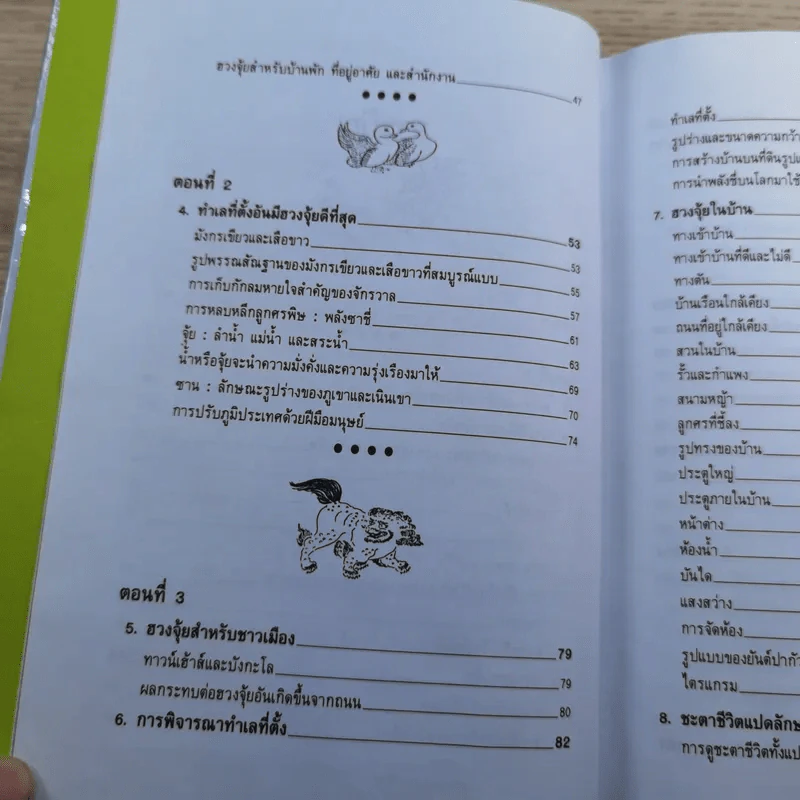 ฮวงจุ้ยสำหรับบ้านพัก ที่อยู่อาศัย และสำนักงาน 47
ตอนที่ 2
4. ทำเลที่ตั้งอันมีฮวงจุ้ยดีที่สุด 53
มังกรเขียวและเสือขาว 53
รูปพรรณสัณฐานของมังกรเขียวและเสือขาวที่สมบูรณ์แบบ 55
การเก็บกักลมหายใจสำคัญของจักรวาล 57
การหลบหลีกลูกศรพิษ : พลังซาชี่ 61
จุ้ย : ลำน้ำ แม่น้ำ และสระน้ำ 63
น้ำหรือจุ้ยจะนำความมั่งคั่งและความรุ่งเรืองมาให้ 69
ซาน : ลักษณะรูปร่างของภูเขาและเนินเขา 70
การปรับภูมิประเทศด้วยฝีมือมนุษย์ 74
ตอนที่ 3
5. ฮวงจุ้ยสำหรับชาวเมือง 79
ทาวน์เฮ้าส์และบังกะโล 79
ผลกระทบต่อฮวงจุ้ยอันเกิดขึ้นจากถนน 80
6. การพิจารณาทำเลที่ตั้ง 82
ทำเลที่ตั้ง
รูปร่างและขนาดความกว้า
การสร้างบ้านบนที่ดินรูปแ
การนำพลังชี่บนโลกมาใช้
7. ฮวงจุ้ยในบ้าน
ทางเข้าบ้าน
ทางเข้าบ้านที่ดีและไม่ดี
ทางตัน
บ้านเรือนใกล้เคียง
ถนนที่อยู่ใกล้เคียง
สวนในบ้าน
รั้วและกำแพง
สนามหญ้า
ลูกศรที่ชี้ลง
รูปทรงของบ้าน
ประตูใหญ่
ประตูภายในบ้าน
หน้าต่าง
ห้องน้ำ
บันได
แสงสว่าง
การจัดห้อง
รูปแบบของยันต์ปากัว
ไตรแกรม
8. ชะตาชีวิตแปดลักษ
การดูชะตาชีวิตทั้งแป